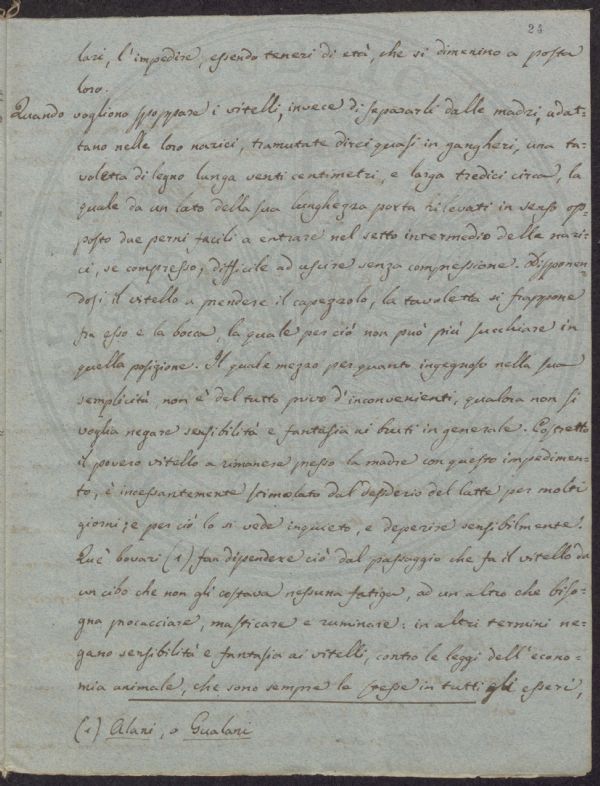 24
lari, l'impedire, essendo teneri di età, che si dimenino a posta
loro.
Quando vogliono spoppare i vitelli, invece di separarli dalle madri, adat=
tano nelle loro narici, tramutate direi quasi in gangheri, una ta=
voletta di legno lunga venti centimetri, e larga tredici circa, la
quale da un lato della sua lunghezza porta rilevati in senso op=
posto due perni facili a entrare nel setto intermedio delle nari=
ci, se compresso; difficile ad uscire senza compressione. Disponen=
dosi il vitello a prendere il capezzolo, la tavoletta si frappone
fra esso e la bocca, la quale per ciò non può più succhiare in
quella posizione. Il quale mezzo per quanto ingegnoso nella sua
semplicità, non è del tutto privo d'inconvenienti, qualora non si
voglia negare sensibilità e fantasia ai bruti in generale. Costretto
il povero vitello a rimanere presso la madre con questo impedimen=
to, è incessantemente stimolato dal desiderio del latte per molti
giorni; e per ciò lo si vede inquieto, e deperire sensibilmente.
Que' bovari (1) fan dipendere ciò dal passaggio che fa il vitello da
un cibo che non gli costava nessuna fatiga, ad un altro che biso=
gna procacciare, masticare e ruminare: in altri termini ne=
gano sensibilità e fantasia ai vitelli, contro le leggi dell'econo=
mia animale, che sono sempre le stesse in tutti gli esseri,
(1) Alani, o Gualani